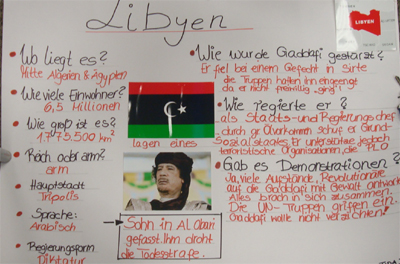 Libyen
LIBYEN
Wo liegt es?
Mitte Algerien & Ägypten
Wie viele Einwohner?
6,5 Millionen
Wie groß ist es?
1.775.500 km²
Reich oder arm?
arm
Hauptstadt
Tripolis
Sprache:
Arabisch
Regierungsform
Diktatur
lagen eines
Sohn in Al Obari
gefasst. Ihm droht
die Todesstrafe.
Wie wurde Gaddafi gestürzt?
Er fiel bei einem Gefecht in Sirte
die Truppen hatten ihn eingeengt
da er nicht freiwillig „ging“!
Wie regierte er?
als Staats- und Regierungschef
durch Abkommen schuf er Grund-
Sozialstaates. Er unterstütze jedoch
terroristische Organisationen die PLO
Gab es Demonstrationen?
Ja, viele Aufstände, Revolutionäre
auf die Gaddafi mit Gewalt antwort
Alles brach in sich zusammen.
Die UN-Truppen griffen ein.
Gaddafi wollte nicht verzichten!